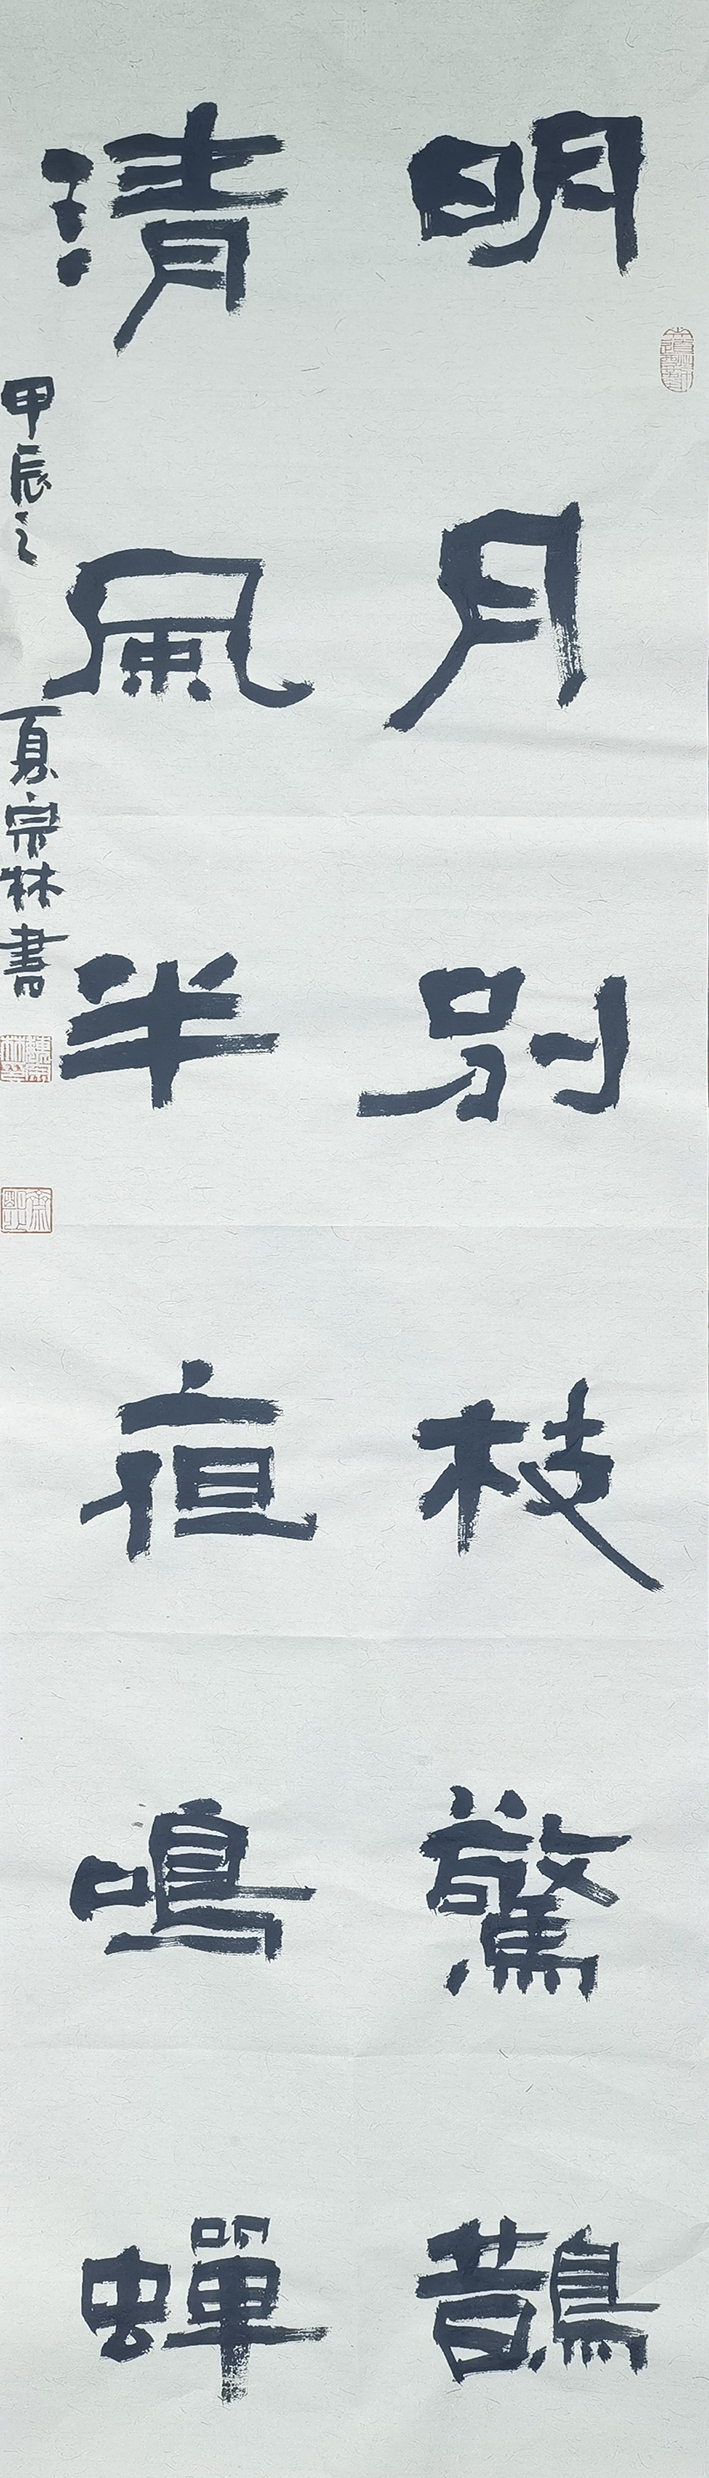 明月別枝驚鵲
清風半夜鳴蟬
甲辰之夏宗林書